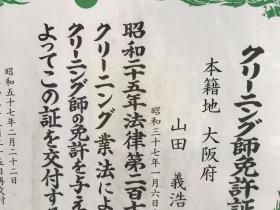 クリーニング師免許証
本籍地 大阪府
山田 義浩
昭和三十七年一月六日
昭和二十五年法律第二百十
クリーニング業法によ
クリーニング師の免許を与え
よってこの証を交付す
昭和五十七年二月二十二日